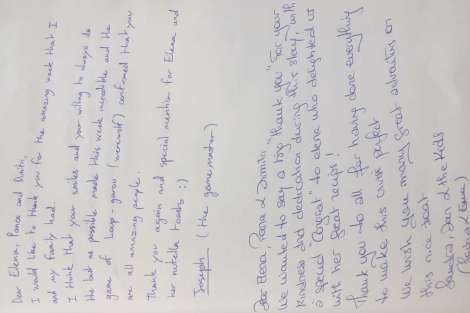 Dear Elena, Panos and Dimitri,
I would like to thank you for the amazing week that I
and my family had.
I think that your smiles and your willing to always do
the best as possible made this week incredible and the
game of Loup-garou (werewolf) confirmed that you
are all amazing people.
Thank you again and special mention for Elena and
her nutella toasts :)
Joseph (the game master)
Dear Elena, Panos & Dimitri
We wanted to say a big "thank you" for your
kindness and dedication during this stay, with
a special "congrat" to Elena who delighted us
with her great recips!
Thank you to all for having done everything
to make this cruise perfect
We wish you many great adventures on
this nice boat
Dan & the kids